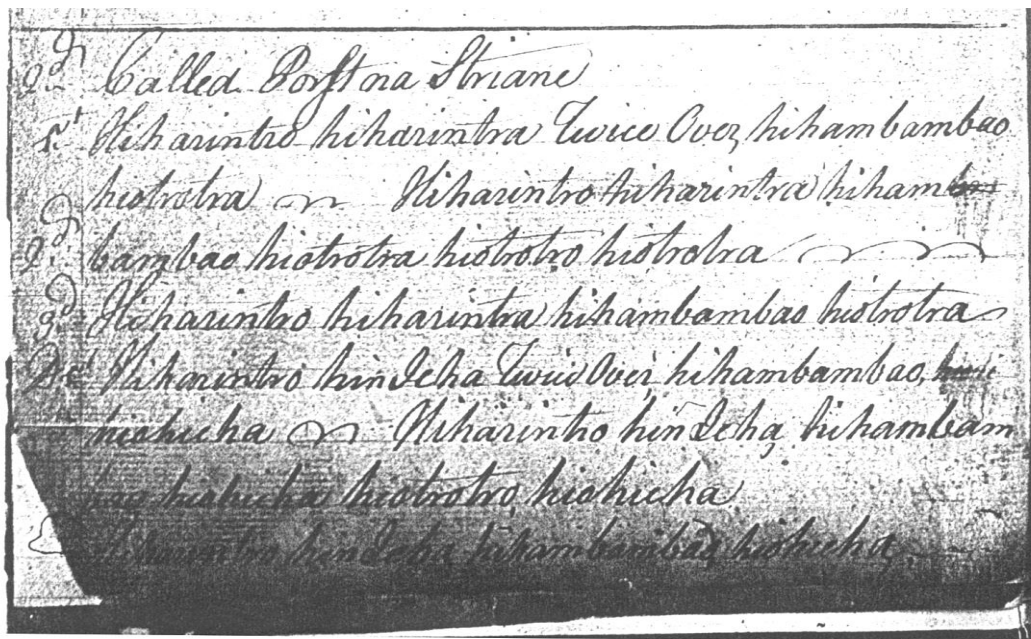 2d Called Porst na Striane
1t Hiharintro hiharintra Twice Over, hihambambao
hiotrotra Hiharintro hiharintra hiham
2d bambao hiotrotra hiotrotro hiotrotra
3d Hiharintro hiharintra hihambambao hiotrotra
Hiharintro hindcha Twice Over, hihambambao,
hiohicha Hiharintro hindcha, hihambam
bao hiohicha hiotrotro, hiohicha
Hiharintro hindcha, hihambambao, hiohicha,